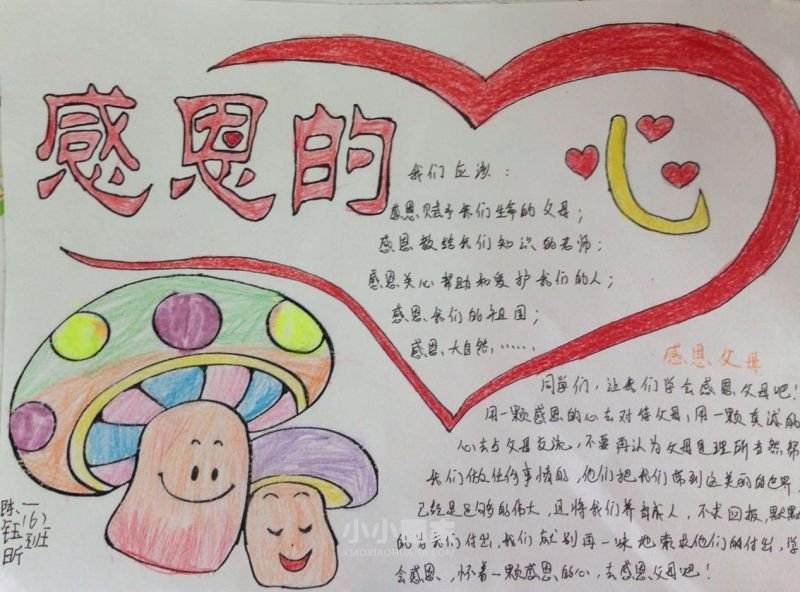 感恩的心
我们应该：
感恩赋予我们生命的父母；
感恩教给我们知识的老师；
感恩关心帮助和爱护我们的人；
感恩我们的祖国；
感恩大自然……
感恩父母
同学们，让我们学会感恩父母吧！
用一颗感恩的心去对待父母，用一颗真诚的
心去与父母交流，不要再认为父母是理所当然帮
我们做任何事情的，他们把我们带到这美丽的世界，
已经是足够的伟大，且将我们养育成人，不求回报，默默
的为我们付出，我们就别再一味地索求他们的付出，学
会感恩，怀着一颗感恩的心，去感恩父母吧！
一(6)班
陈钰昕
小小画家
XIAOXIAOHUAJIA.COM